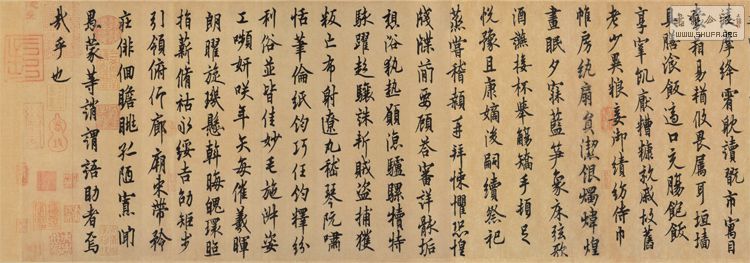 摩絳霄耽讀翫市寓目
囊箱易輶攸畏屬耳垣墻
具膳飡飯適口充腸飽飫
享宰飢厭糟糠親戚故舊
老少異粮妾御績紡侍巾
帷房紈扇員潔銀燭煒煌
晝眠夕寐藍笋象床弦歌
酒讌接杯舉觴矯手頓足
悅豫且康嫡後嗣續祭祀
蒸嘗稽顙再拜悚懼恐惶
牋牒簡要顧答審詳骸垢
想浴執熱願凉驢騾犢特
駭躍超驤誅斬賊盜捕獲
叛亡布射遼丸嵇琴阮嘯
恬筆倫紙鈞巧任釣釋紛
利俗並皆佳妙毛施淑姿
工嚬妍咲年矢每催羲暉
朗曜旋璣懸斡晦魄環照
指薪脩祜永綏吉劭矩步
引領俯仰廊廟束帶矜
莊俳佪瞻眺孤陋寡聞
愚蒙等誚謂語助者焉
哉乎也
WWW.SHUFA.ORG